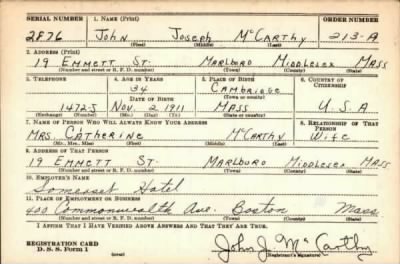 SERIAL NUMBER 1. NAME (Print) ORDER NUMBER
2876 John Joseph McCarthy 213-A
(First) (Middle) (Last)
2. ADDRESS (Print)
19 Emmett St. Marlboro Middlesex Mass
(Number and street or R. F. D. number) (Town) (County) (State)
3. TELEPHONE 4. AGE IN YEARS 5. PLACE OF BIRTH 6. COUNTRY OF CITIZENSHIP
34 Cambridge
DATE OF BIRTH (Town or county)
1472-J Nov. 2 1911 Mass U.S.A
(Exchange) (Number) (Mo.) (Day) (Yr.) (State or country)
7. NAME OF PERSON WHO WILL ALWAYS KNOW YOUR ADDRESS 8. RELATIONSHIP OF THAT PERSON
Mrs. Catherine McCarthy Wife
(Mr., Mrs., Miss) (First) (Middle) (Last)
9. ADDRESS OF THAT PERSON
19 Emmett St. Marlboro Middlesex Mass
(Number and street or R. F. D. number) (Town) (County) (State)
10. EMPLOYER'S NAME
Somerset Hotel
11. PLACE OF EMPLOYMENT OR BUSINESS
400 Commonwealth Ave. Boston Mass.
(Number and street or R. F. D. number) (Town) (County) (State)
I AFFIRM THAT I HAVE VERIFIED ABOVE ANSWERS AND THAT THEY ARE TRUE.
REGISTRATION CARD
D. S. S. Form 1
John J. McCarthy
(Registrant's signature)